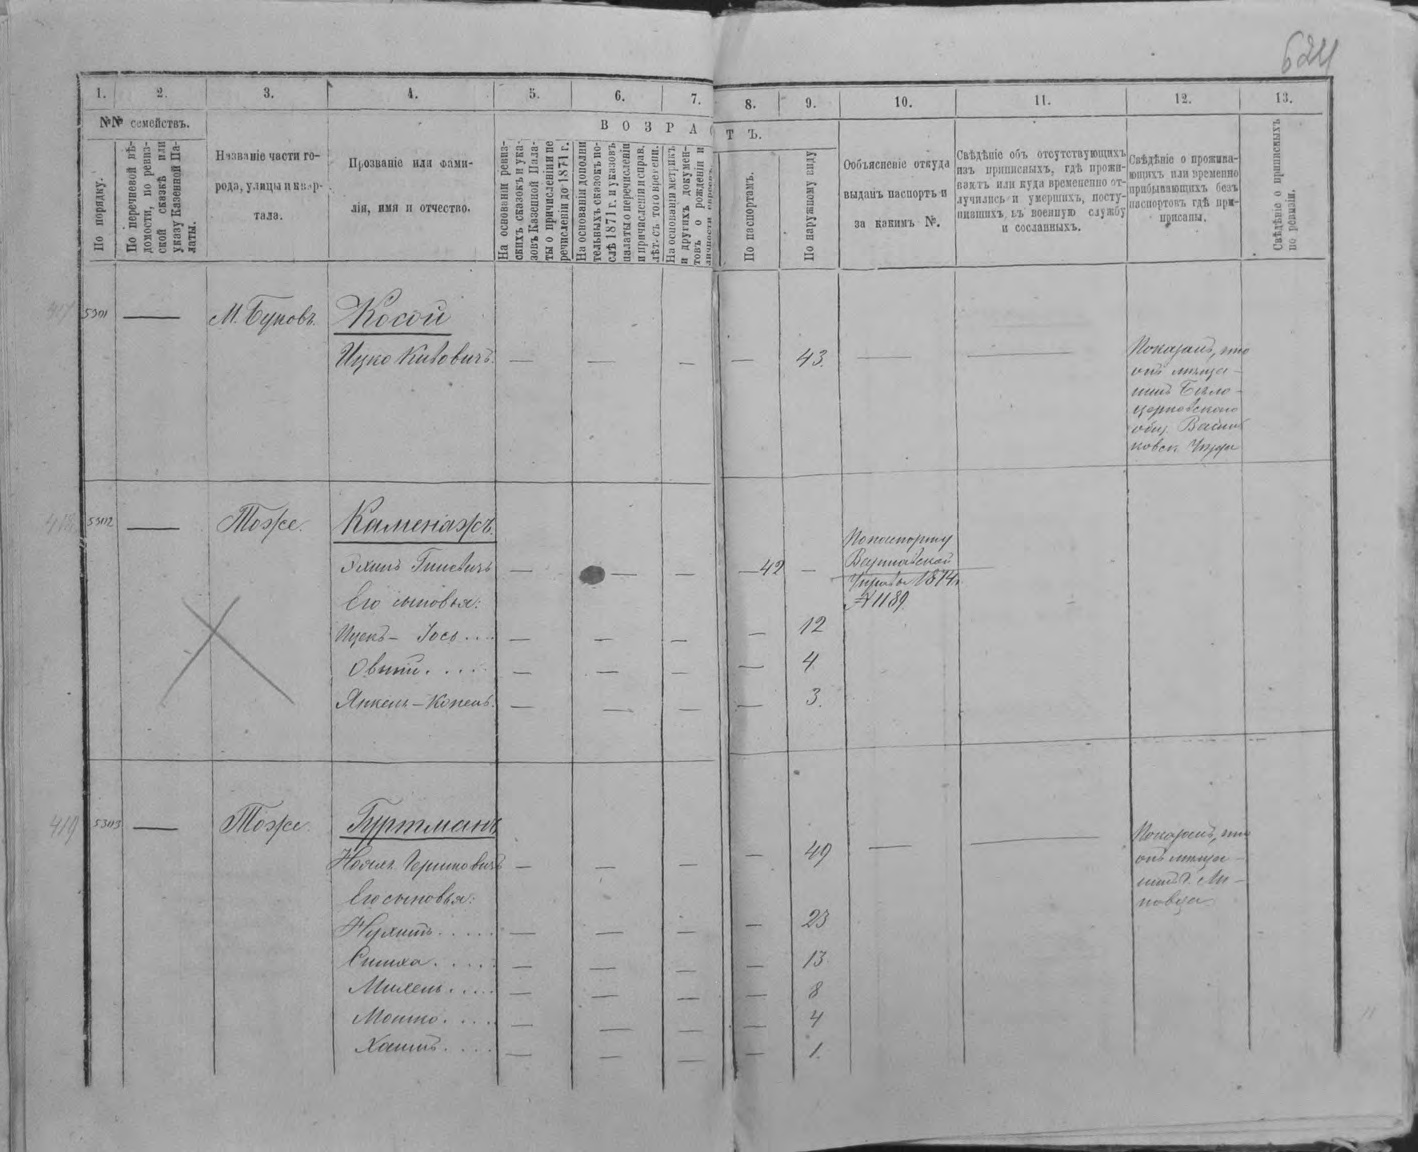 624
1. 2. 3. 4. 5. 6. 7. 8. 9. 10. 11. 12. 13.
№№ семействъ.
ВОЗРАСТЪ.
По порядку.
По перечневой вѣ-
домости, по ревиз-
ской сказкѣ или
указу Казенной Па-
латы.
Названіе части го-
рода, улицы и квар-
тала.
Прозваніе или фами-
лія, имя и отчество.
На основаніи ревиз-
скихъ сказокъ и ука-
зовъ Казенной Пала-
ты о причисленіи пе
речисленіи до 1871 г.
На основаніи дополни
тельныхъ сказокъ по-
слѣ 1871 г. и указовъ
палаты о перечисленіи
и причисленіи и справ.
лѣт. съ того времени.
На основаніи метрикъ
и другихъ докумен-
товъ о рожденіи и
личности евреевъ.
По паспортамъ.
По наружному виду
Объясненіе откуда
выданъ паспортъ и
за какимъ №.
Свѣдѣніе объ отсутствующихъ
изъ приписныхъ, гдѣ прожи-
ваютъ или куда временно от-
лучились и умершихъ, посту-
пившихъ въ военную службу
и сосланныхъ.
Свѣдѣніе о прожива-
ющихъ или временно
прибывающихъ безъ
паспортовъ гдѣ при-
приисаны.
Свѣдѣніе о приписныхъ
по ревизіи.
417 5301 — М. Буковъ. Косой
Ицко Китовичъ — — — — 43. — —
Показалъ, что
онъ мѣща-
нинъ Бѣло-
церковскаго
общ. Васил
ковск. Уѣзда
418 5302 — Тоже. Каменажъ
Гишевичъ — — — — 42 —
По паспорту
Варшавской
Управы 1874 г.
№ 1189
Его сыновья:
Ицекъ — Iось . . . — — — — 12
Овшій. . . . . — — — — 4
Янкель — Копель. — — — — 3.
419 5303 — Тоже. Гуртманъ
Гершковичъ — — — — 49 — —
Показалъ, что
онъ мѣща-
нинъ г. Ли-
повца
Его сыновья:
Нухимъ . . . . . — — — — 23
Симха . . . . . — — — — 13
Михель . . . . . — — — — 8
Мошко . . . . — — — — 4
Хаимъ . . . . — — — — 1.